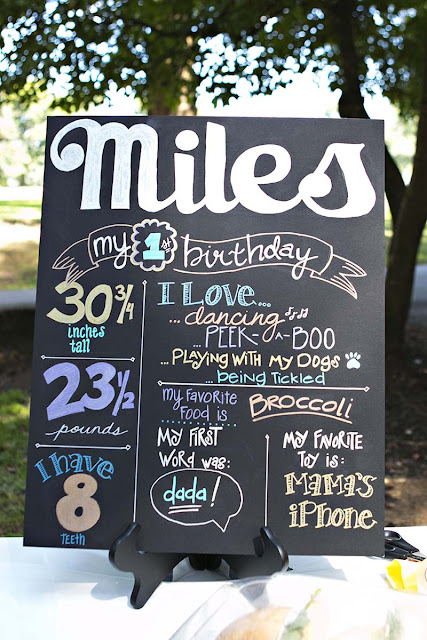 Miles
my 1st birthday
30 3/4
inches
tall
23 1/2
pounds
I have
8
TEETH
I Love...
...dancing
...PEEK-A-BOO
...PLAYING WITH MY DOGS
...being TICKLED
my FAVORITE
FOOD is
BROCCOLI
MY FIRST
WORD WAS:
dada!
MY FAVORITE
TOY is:
MAMA'S
iPHONE